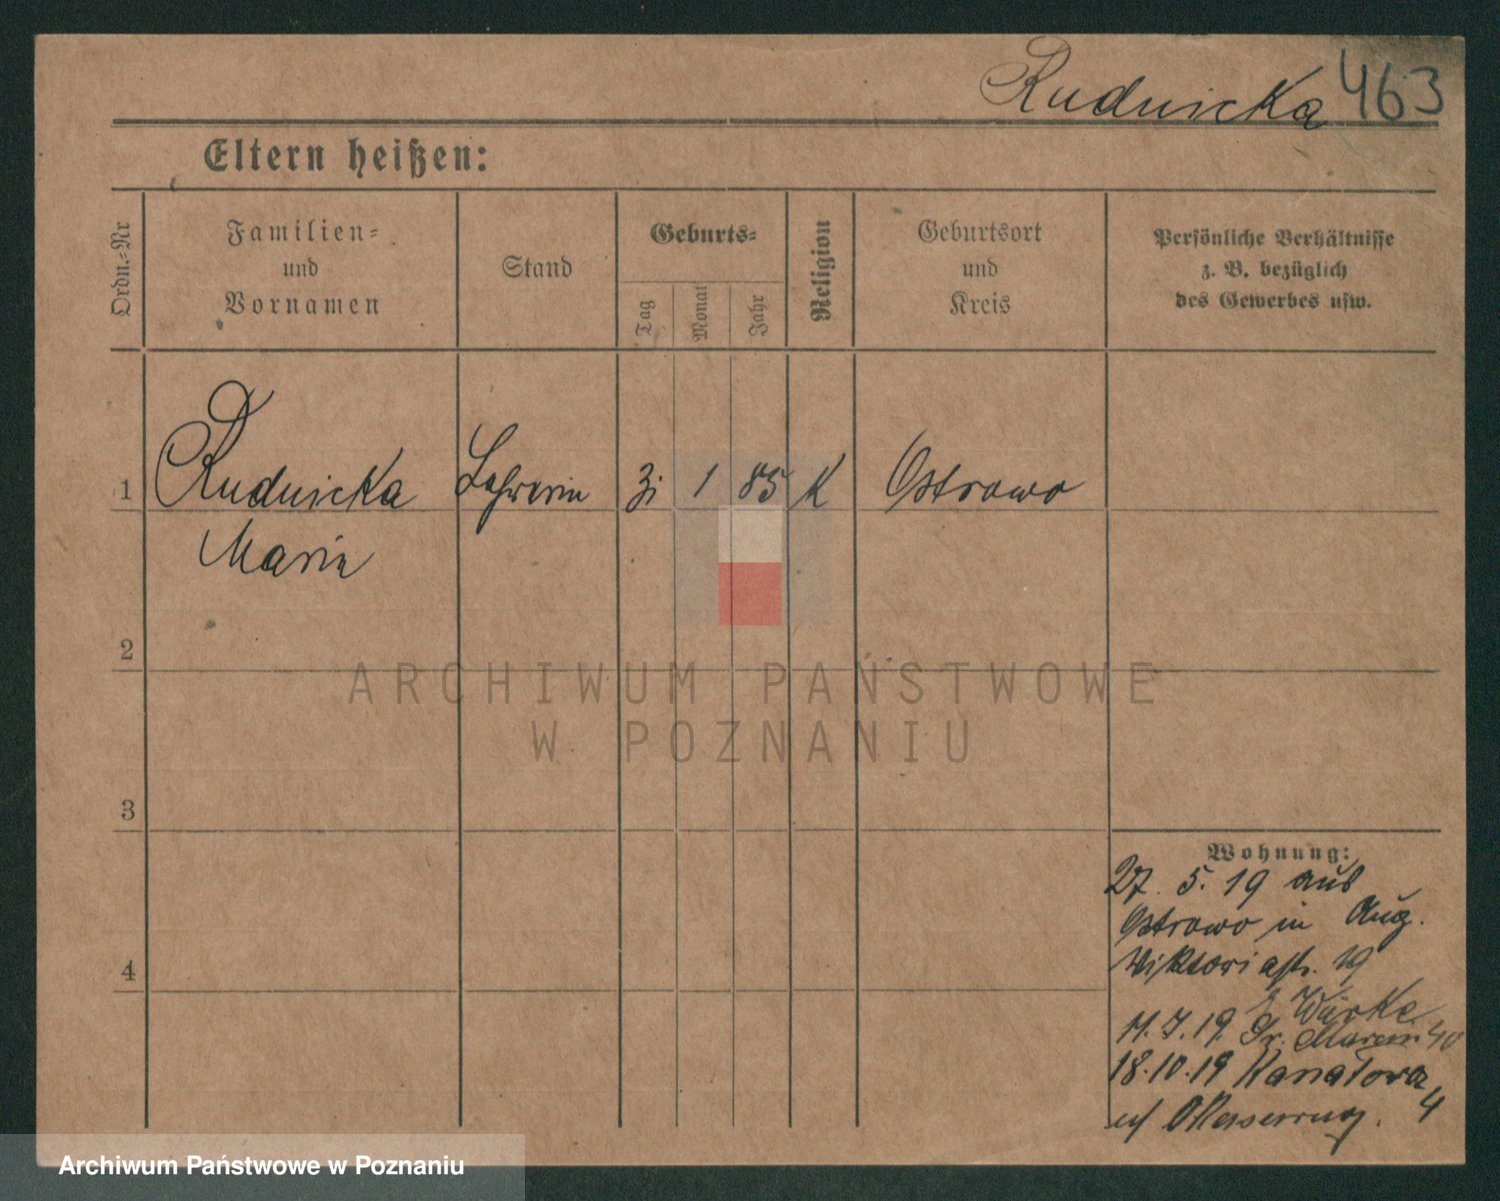 Rudnicka 463
Eltern heißen:
Ordn.-Nr
Familien-
und
Vornamen
Stand
Geburts-
Tag
Monat
Jahr
Religion
Geburtsort
und
Kreis
Persönliche Verhältnisse
z. B. bezüglich
des Gewerbes usw.
1 Rudnicka Lehrerin 31 1 85 K Ostrowo
Maria
2
3
4
Wohnung:
27. 5. 19 aus
Ostrowo in Aug.
Viktoriastr. 19
11. 7. 19 Sr. Marcin 40
18.10.19 Kanałova
4
ARCHIWUM PAŃSTWOWE
W POZNANIU
Archiwum Państwowe w Poznaniu